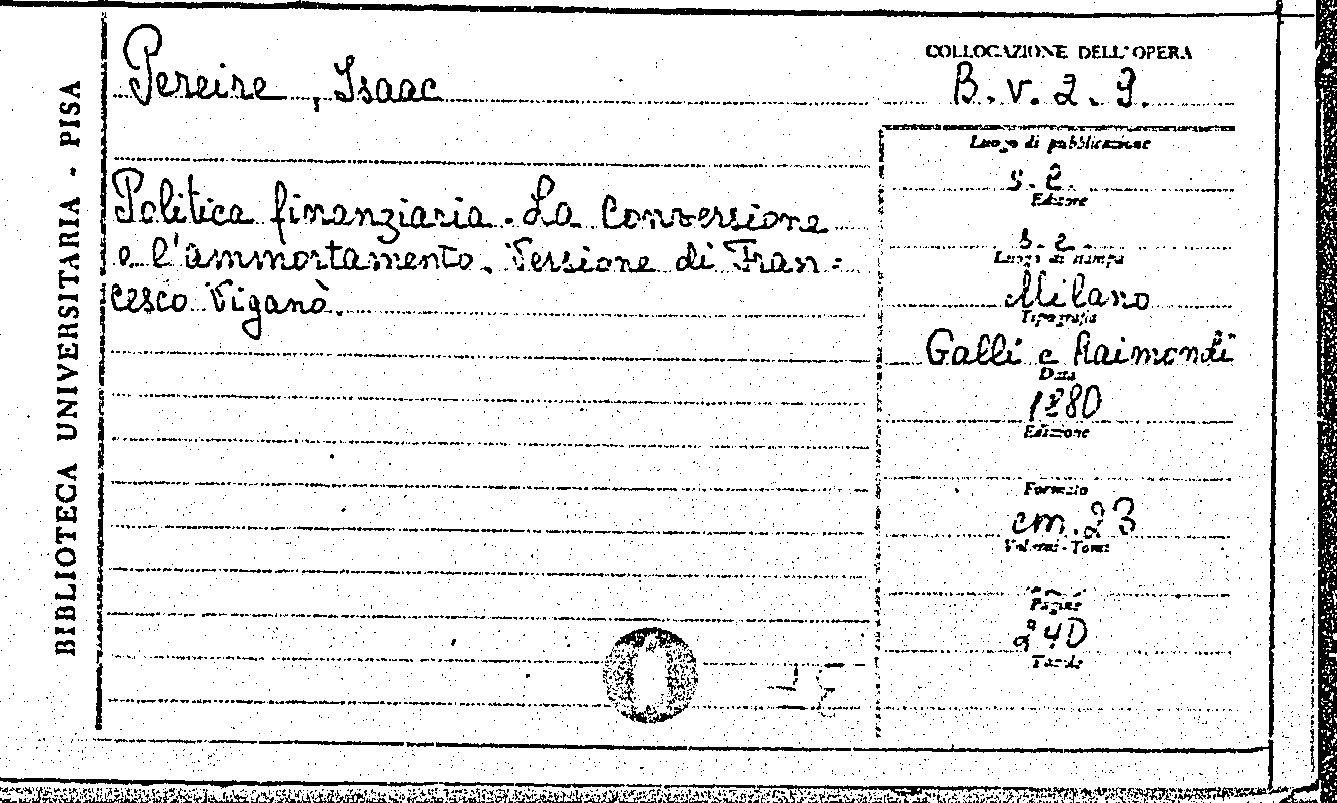 BIBLIOTECA UNIVERSITARIA - PISA
Pereire, Isaac
Politica finanziaria. La Conversione
e l'ammortamento. Versione di Fran=
cesco Viganò.
COLLOCAZIONE DELL'OPERA
B. v. 2. 9.
Luogo di pubblicazione
s. e.
Editore
s. e.
Luogo di stampa
Milano
Tipografia
Galli e Raimondi
Data
1880
Edizione
Formato
cm. 23
Volumi - Tomi
Pagine
240
Tavole